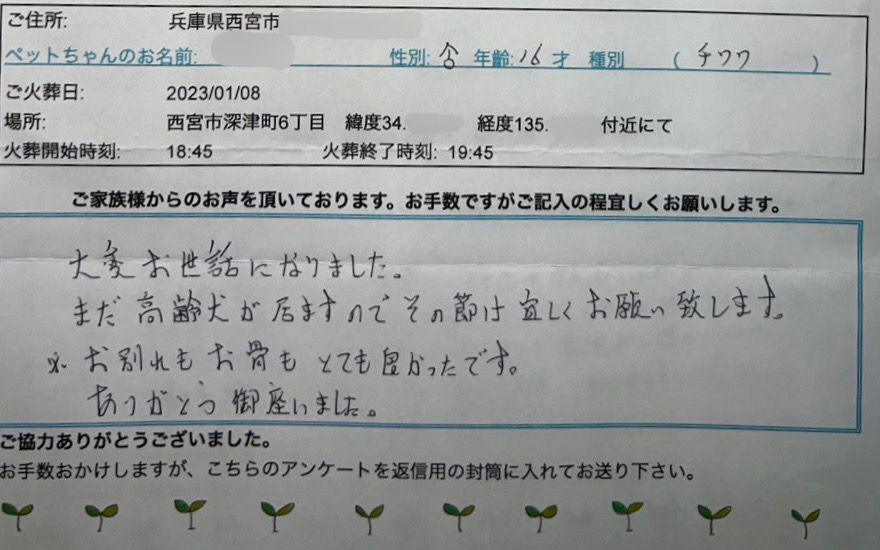 ご住所: 兵庫県西宮市
ペットちゃんのお名前: 性別: 年齢: 16 才 種別 ( チワワ )
ご火葬日: 2023/01/08
場所: 西宮市深津町6丁目 緯度34. 経度135. 付近にて
火葬開始時刻: 18:45 火葬終了時刻: 19:45
ご家族様からのお声を頂いております。お手数ですがご記入の程宜しくお願いします。
大変お世話になりました。
まだ高齢犬が居ますのでその節は宜しくお願い致します。
※お別れもお骨もとても良かったです。
ありがとう御座いました。
ご協力ありがとうございました。
お手数おかけしますが、こちらのアンケートを返信用の封筒に入れてお送り下さい。